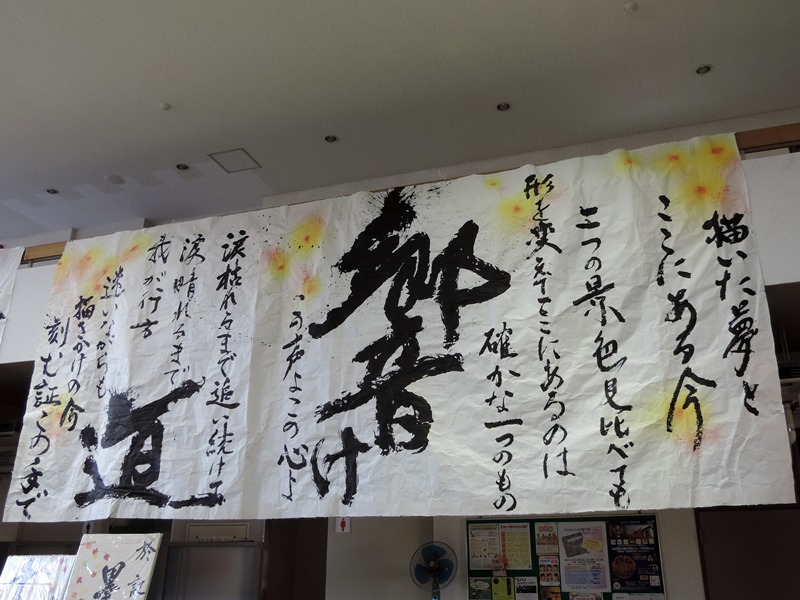 描いた夢と
ここにある今
二つの景色見比べても
形を変えてそこにあるのは
確かな一つのもの
響け
この声よこの心よ
涙枯れるまで追い続け
涙晴れるまで
我が行方
道
迷いながらも
描きかけの今
刻む証この手で
於
墨